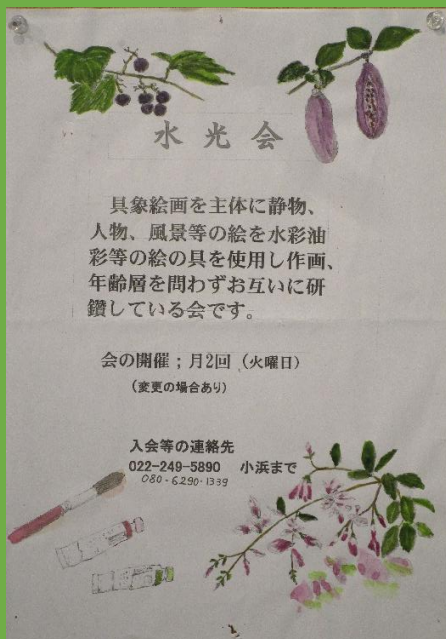 水光会
具象絵画を主体に静物、
人物、風景等の絵を水彩油
彩等の絵の具を使用し作画、
年齢層を問わずお互いに研
鑽している会です。
会の開催；月2回（火曜日）
（変更の場合あり）
入会等の連絡先
022-249-5890　小浜まで
080-6290-1339